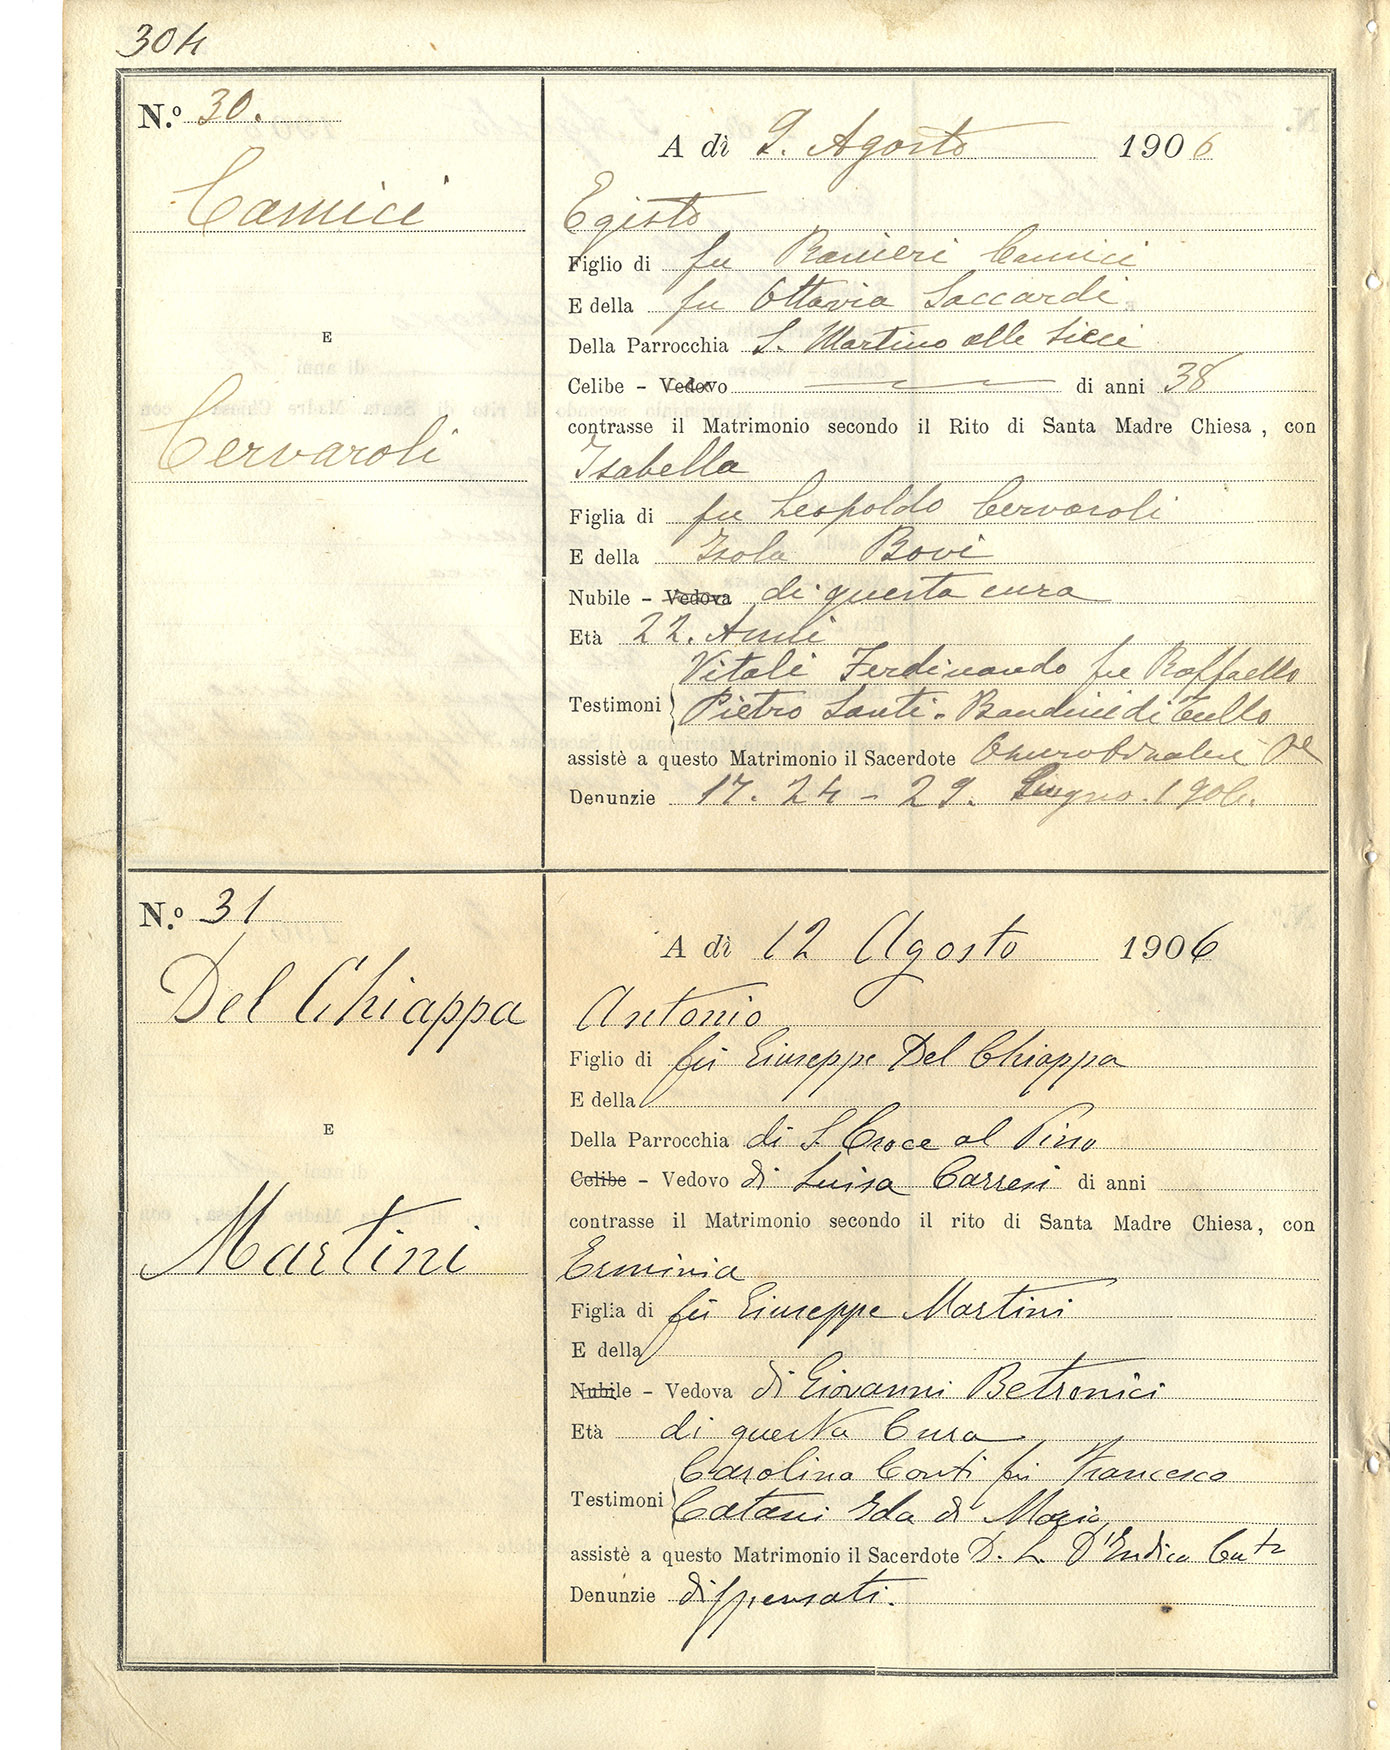 304
N.º 30.
Camici
E
Cervaroli
A dì 9. Agosto 1906
Egisto
Figlio di fu Ranieri Camici
E della fu Ottavia Saccardi
Della Parrocchia S. Martino alle Sieci
Celibe - Vedovo di anni 38
contrasse il Matrimonio secondo il Rito di Santa Madre Chiesa, con
Isabella
Figlia di fu Leopoldo Cervaroli
E della Isola Bovi
Nubile - Vedova di questa cura
Età 22. Anni
Vitali Ferdinando fu Raffaello
Testimoni Pietro Santi - Bandini di Tullo
assistè a questo Matrimonio il Sacerdote
Denunzie 17. 24 - 29. Giugno. 1906.
N.º 31
Del Chiappa
E
Martini
A dì 12 Agosto 1906
Antonio
Figlio di fù Giuseppe Del Chiappa
E della
Della Parrocchia di S Croce al Pino
Celibe - Vedovo di Luisa Carresi di anni
contrasse il Matrimonio secondo il rito di Santa Madre Chiesa, con
Erminia
Figlia di fù Giuseppe Martini
E della
Nubile - Vedova di Giovanni Betronici
Età di questa Cura
Carolina Conti fù Francesco
Testimoni Catani Ida di Mario
assistè a questo Matrimonio il Sacerdote D. L. D'Endice
Denunzie dispensati.